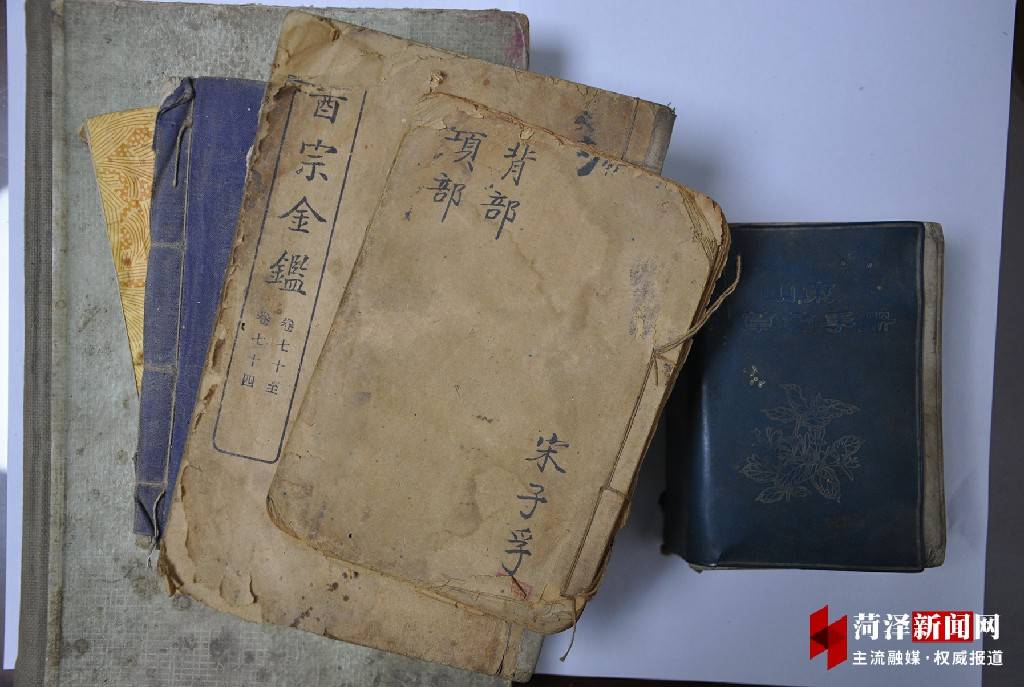 酉宗金鑑
卷七十至
卷七十四
背部
項部
宋子孚
山东
草药手册
菏泽新闻网
主流融媒·权威报道